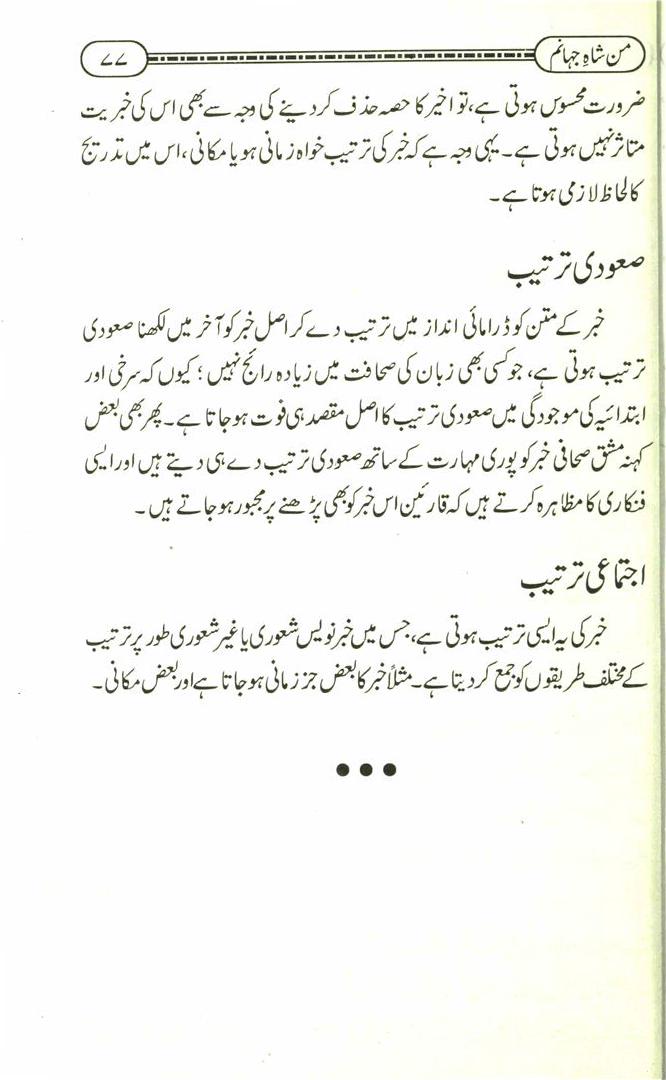 من شاہِ جہانم
۷۷
ضرورت محسوس ہوتی ہے، تو اخیر کا حصہ حذف کر دینے کی وجہ سے بھی اس کی خبریت
متاثر نہیں ہوتی ہے۔ یہی وجہ ہے کہ خبر کی ترتیب خواہ زمانی ہو یا مکانی، اس میں تدریج
کا لحاظ لازمی ہوتا ہے۔
صعودی ترتیب
خبر کے متن کو ڈرامائی انداز میں ترتیب دے کر اصل خبر کو آخر میں لکھنا صعودی
ترتیب ہوتی ہے، جو کسی بھی زبان کی صحافت میں زیادہ رائج نہیں؛ کیوں کہ سرخی اور
ابتدائیہ کی موجودگی میں صعودی ترتیب کا اصل مقصد ہی فوت ہو جاتا ہے۔ پھر بھی بعض
کہنہ مشق صحافی خبر کو پوری مہارت کے ساتھ صعودی ترتیب دے ہی دیتے ہیں اور ایسی
فنکاری کا مظاہرہ کرتے ہیں کہ قارئین اس خبر کو بھی پڑھنے پر مجبور ہو جاتے ہیں۔
اجتماعی ترتیب
خبر کی یہ ایسی ترتیب ہوتی ہے، جس میں خبر نویس شعوری یا غیر شعوری طور پر ترتیب
کے مختلف طریقوں کو جمع کر دیتا ہے۔ مثلاً خبر کا بعض جز زمانی ہو جاتا ہے اور بعض مکانی۔
●●●